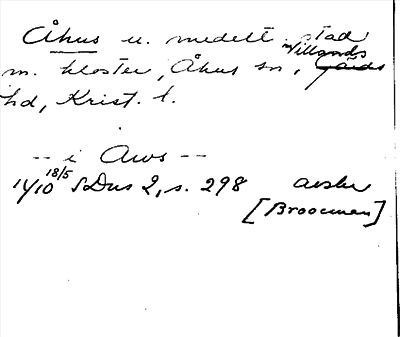 Åhus u. medelt. stad
m. kloster, Åhus sn, Villands
hd, Krist. l.
-- i Aws --
1410 18/5 SDns 2, s. 298 avskr
[Brooeman]